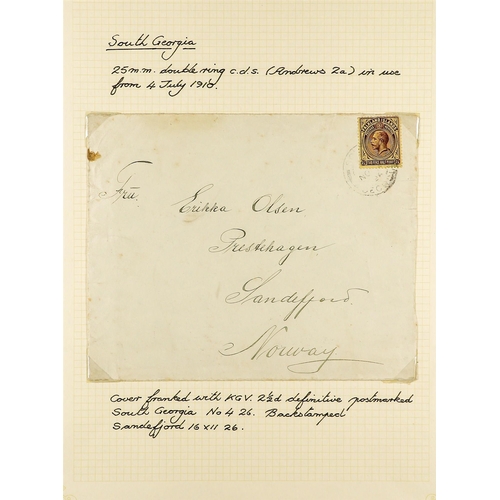 South Georgia
25 m.m. double ring c.d.s. (Andrews 2a) in use
from 4 July 1910.
FALKLAND ISLANDS
Fru
Erikka Olsen
Prestehagen
Sandefjord.
Norway
Cover franked with KGV. 2½d definitive postmarked
South Georgia No 4 26. Backstamped
Sandefjord 16 XII 26.